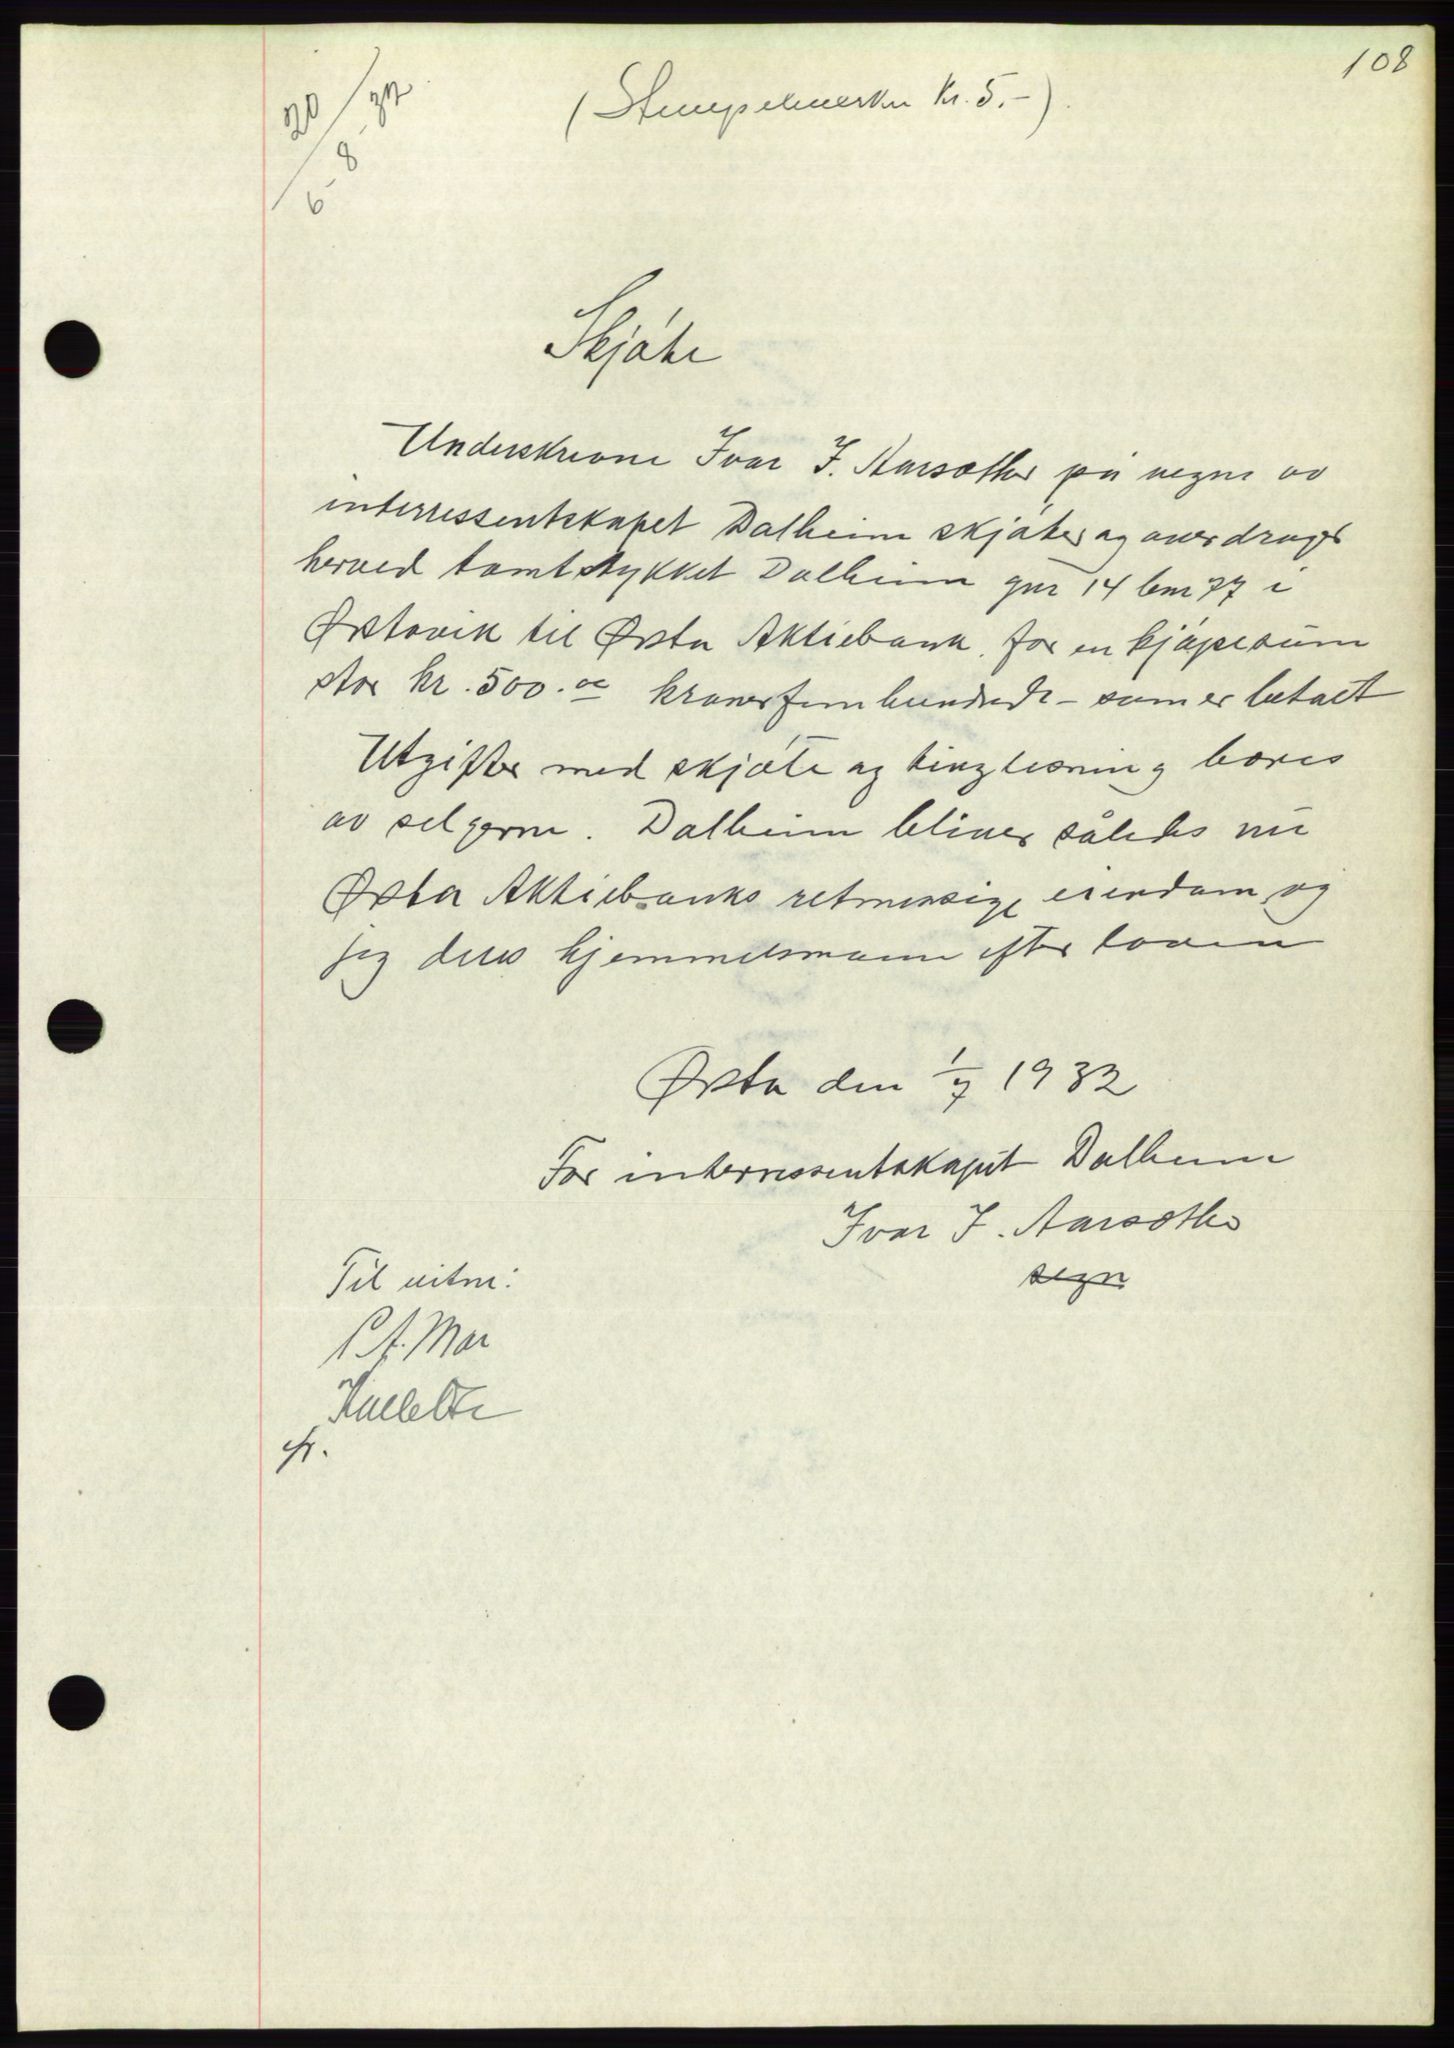 108
20/32
6-8
(Stempelmerke kr. 5.-).
Skjøte
Underskrevne Ivar J. Aarsæther på vegne av
interressentskapet Dalheim skjøter og overdrager
herved tomtstykket Dalheim gnr 14 bnr 77 i
Ørstavik til Ørsta Aktiebank. for en kjøpesum
stor kr. 500.00 kroner femhundrede - som er betalt
Utgifter med skjøte og tinglesning bæres
av selgerne. Dalheim bliver således nu
Ørsta Aktiebanks retmessige eiendom og
jeg deres hjemmelsmann efter loven
Ørsta den 1/7 1932
For interressentskapet Dalheim
Ivar J. Aarsæther
sign
Til vitne:
P A. Mo